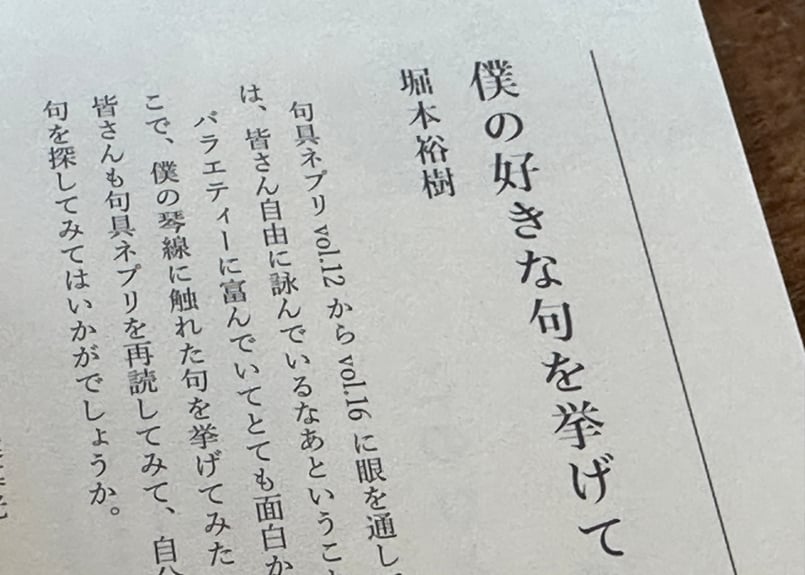 僕の好きな句を挙げて
堀本裕樹
句具ネプリ vol.12 から vol.16 に眼を通し
は、皆さん自由に詠んでいるなあというこ
バラエティーに富んでいてとても面白か
こで、僕の琴線に触れた句を挙げてみた
皆さんも句具ネプリを再読してみて、自
句を探してみてはいかがでしょうか。